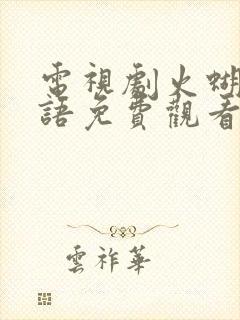 電視劇火蝴
語免費觀看
雲祚華